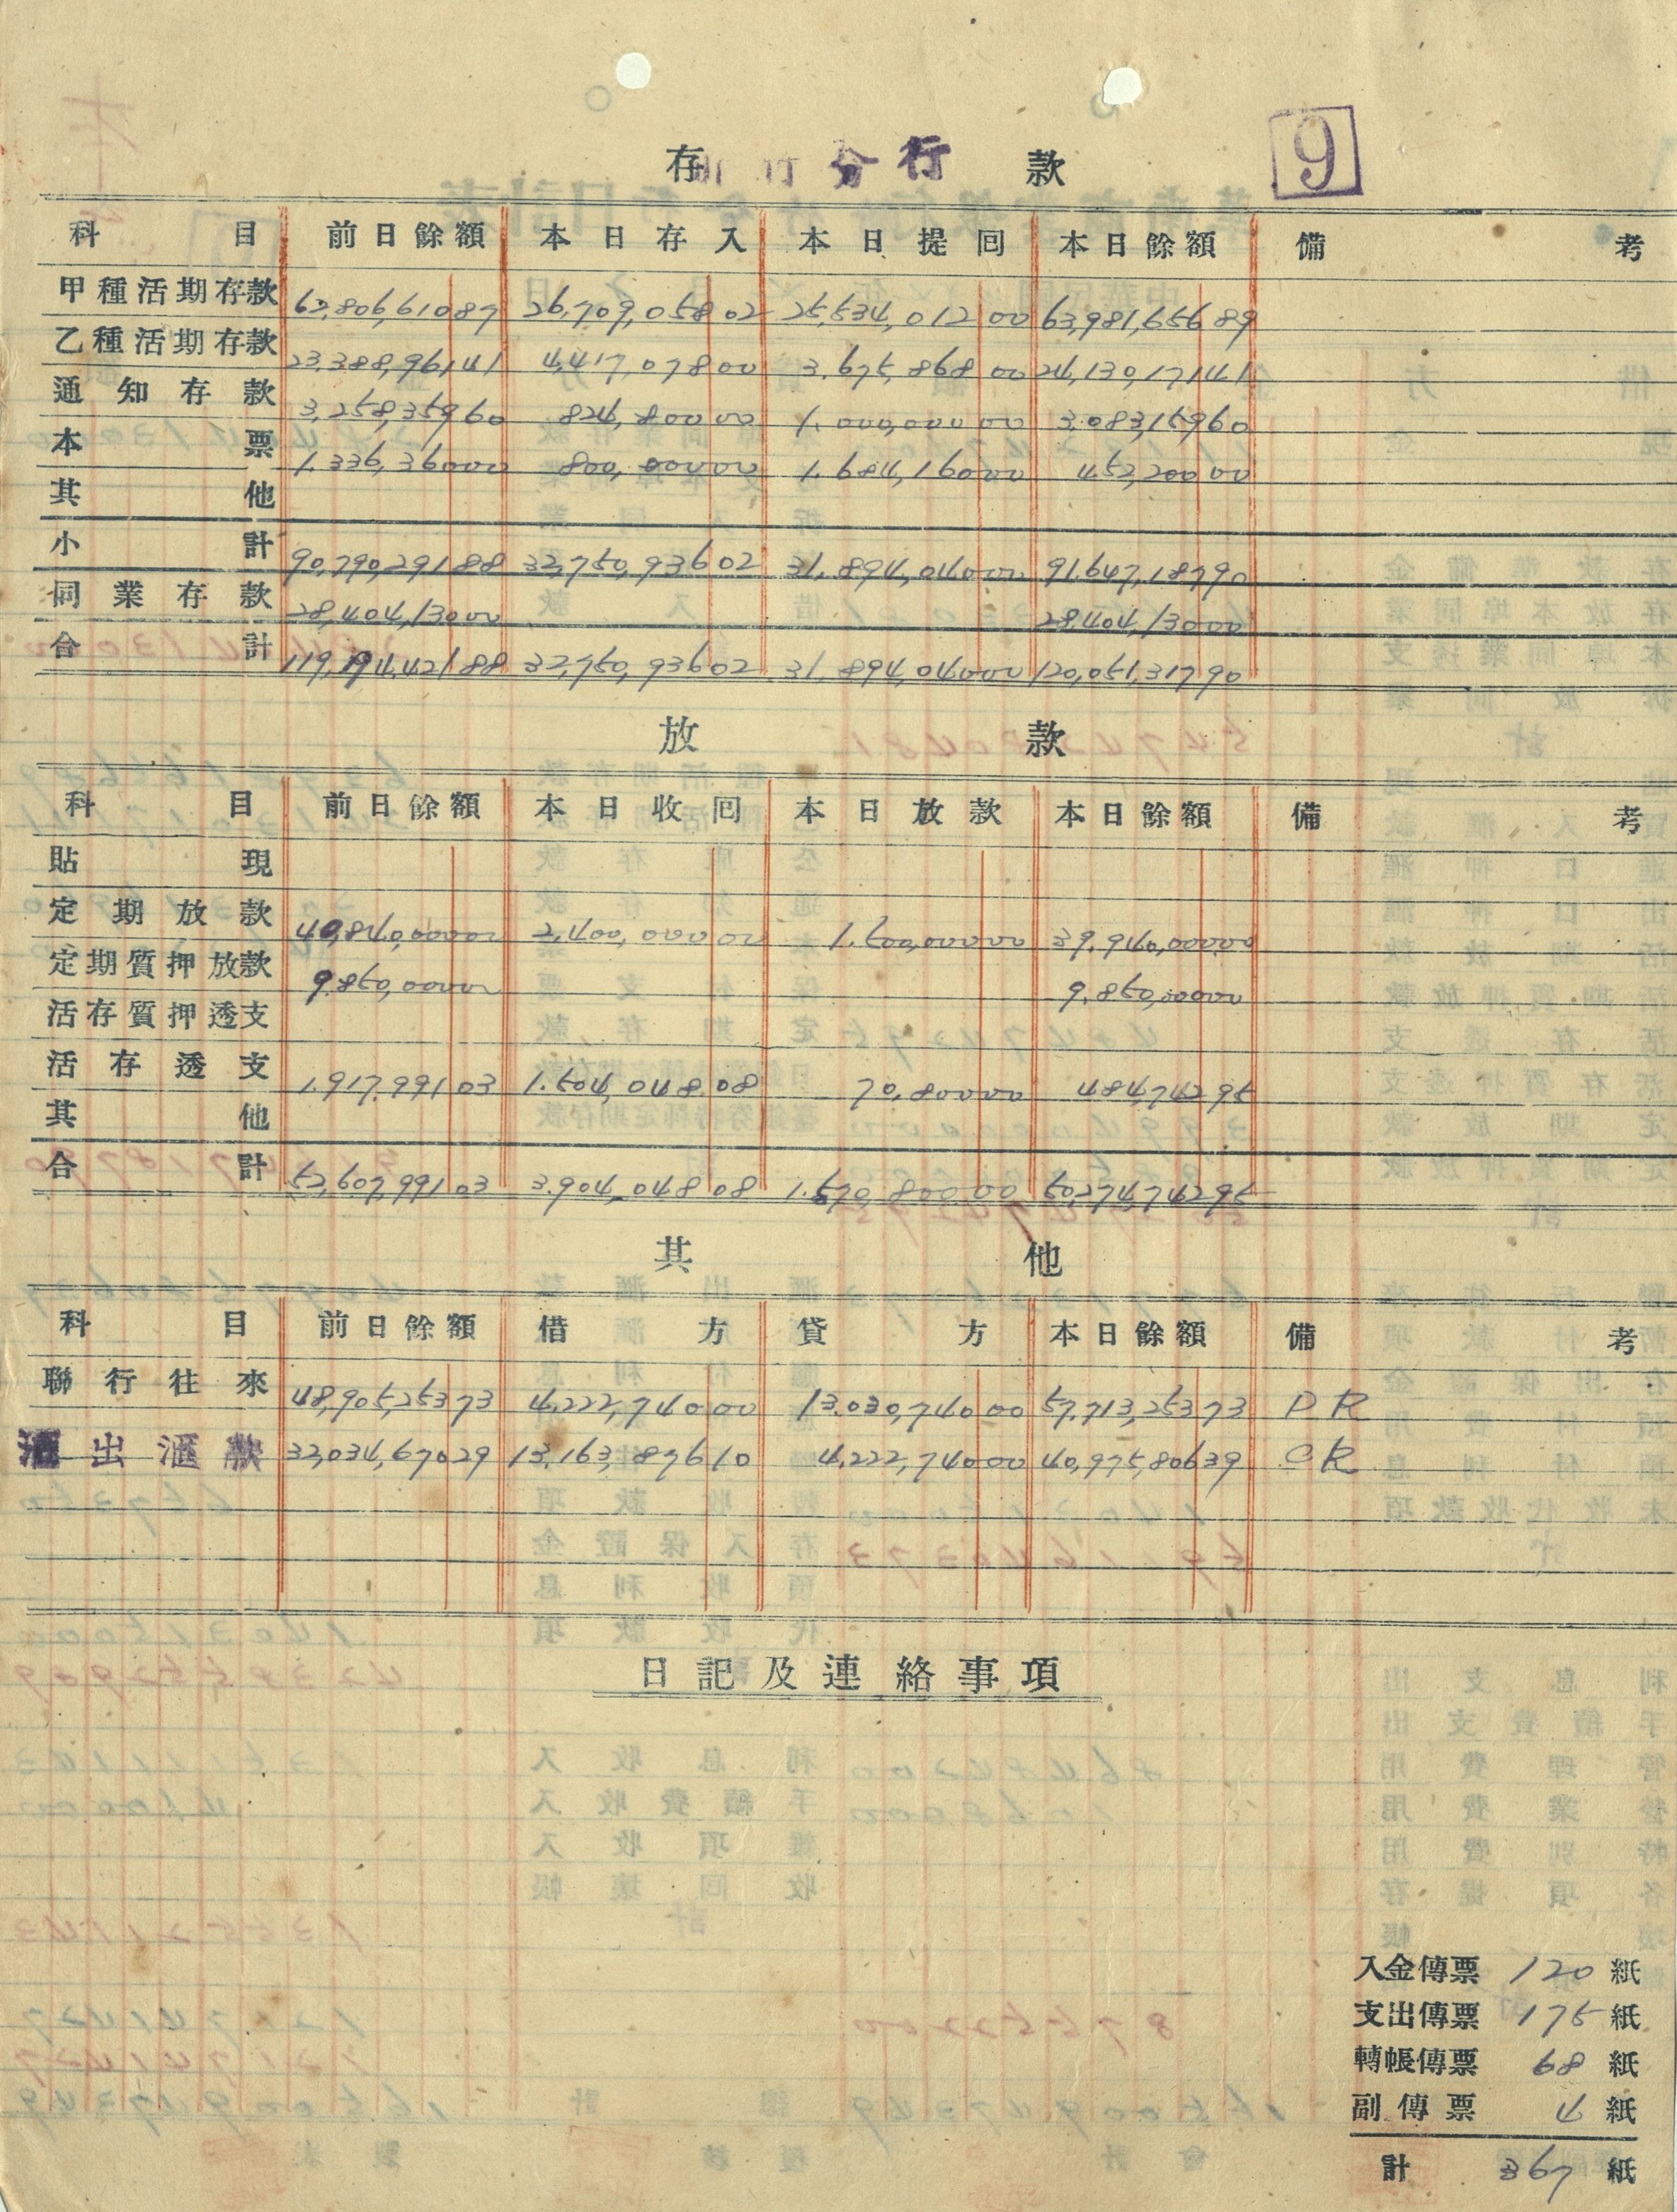 存 分行 款
9
科目 前日餘額 本日存入 本日提囘 本日餘額 備考
甲種活期存款 62,806,610 87 26,709,058 02 25,534,012 00 63,981,656 89
乙種活期存款 23,388,961 41 4,417,078 00 3,675,868 00 24,130,171 41
通知存款 3,258,359 60 824,800 00 1,000,000 00 3,083,159 60
本票 1,336,360 00 800,000 00 1,684,160 00 452,200 00
其他
小計 90,790,291 88 32,750,936 02 31,894,040 00 91,647,187 90
同業存款 28,404,130 00 28,404,130 00
合計 119,194,421 88 32,750,936 02 31,894,040 00 120,051,317 90
放款
科目 前日餘額 本日收囘 本日放款 本日餘額 備考
貼現
定期放款 40,840,000 00 2,400,000 00 1,500,000 00 39,940,000 00
定期質押放款 9,850,000 00 9,850,000 00
活存質押透支
活存透支 1,917,991 03 1,504,048 08 70,800 00 484,742 95
其他
合計 52,607,991 03 3,904,048 08 1,570,800 00 50,274,742 95
其他
科目 前日餘額 借方 貸方 本日餘額 備考
聯行往來 48,905,253 73 4,222,740 00 13,030,740 00 57,713,253 73 DR
滙出滙款 32,034,670 29 13,163,876 10 4,222,740 00 40,975,806 39 CR
日記及連絡事項
入金傳票 120 紙
支出傳票 175 紙
轉帳傳票 68 紙
副傳票 4 紙
計 367 紙